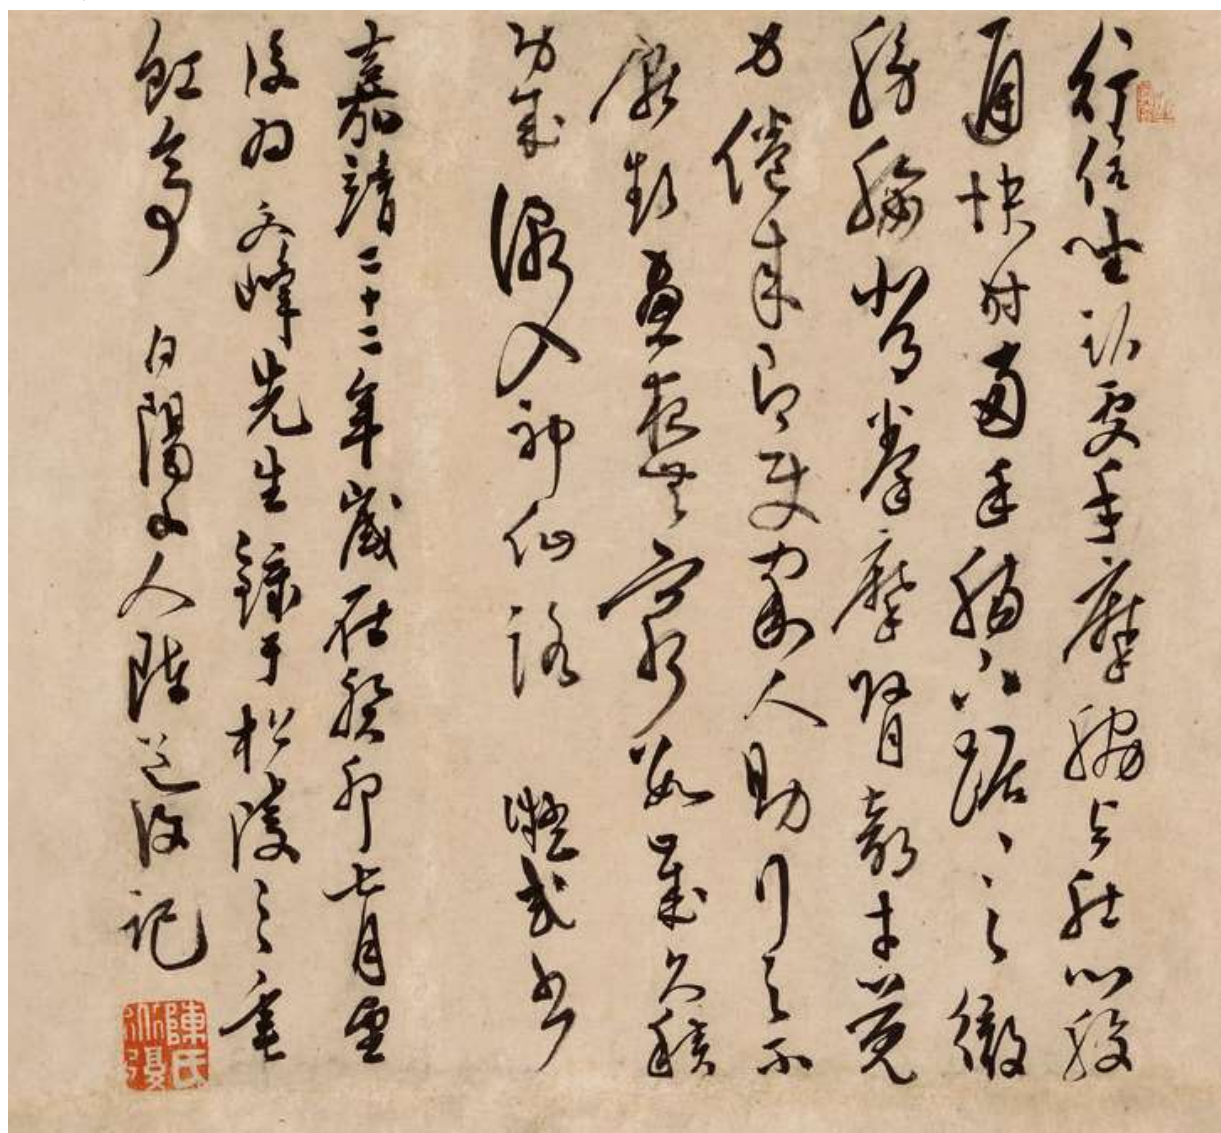 行住坐臥處手摩脇與肚心腹
通快時兩手腸下踞々之徹
膀腰背拳摩腎部才覺
力倦來即使家人助行之不
厭頻晝夜無窮數歲久積
功成漸入神仙路 凝式書
嘉靖二十二年歲在癸卯七月望
後為文峰先生錄于松陵之垂
虹亭 白陽山人陳道復記
陳氏